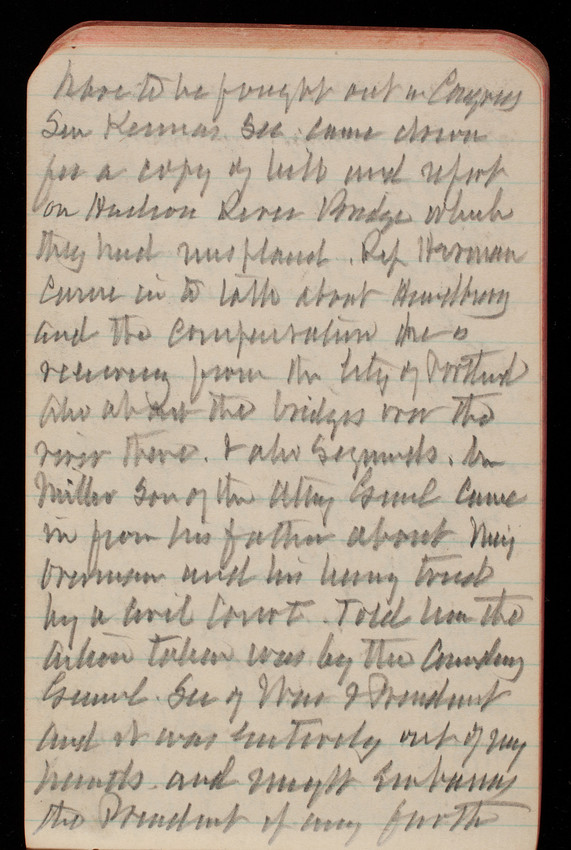 have to be fought out in Congress
Sen Kennas Sec. came down
for a copy of bill and report
on Hudson River Bridge which
they had misplaced. Rep Herman
came in to talk about Handbury
and the compensation he is
receiving from the City of Portland
also about the bridges over the
river there. & also Seguards.
Miller Son of the Atty Genl came
in from his father about Maj
Overman and his being tried
by a Civil Court. Told him the
action taken was by the Comdng
Genl. Sec of War & President
and it was entirely out of my
hands. and might Embarrass
the President if any further